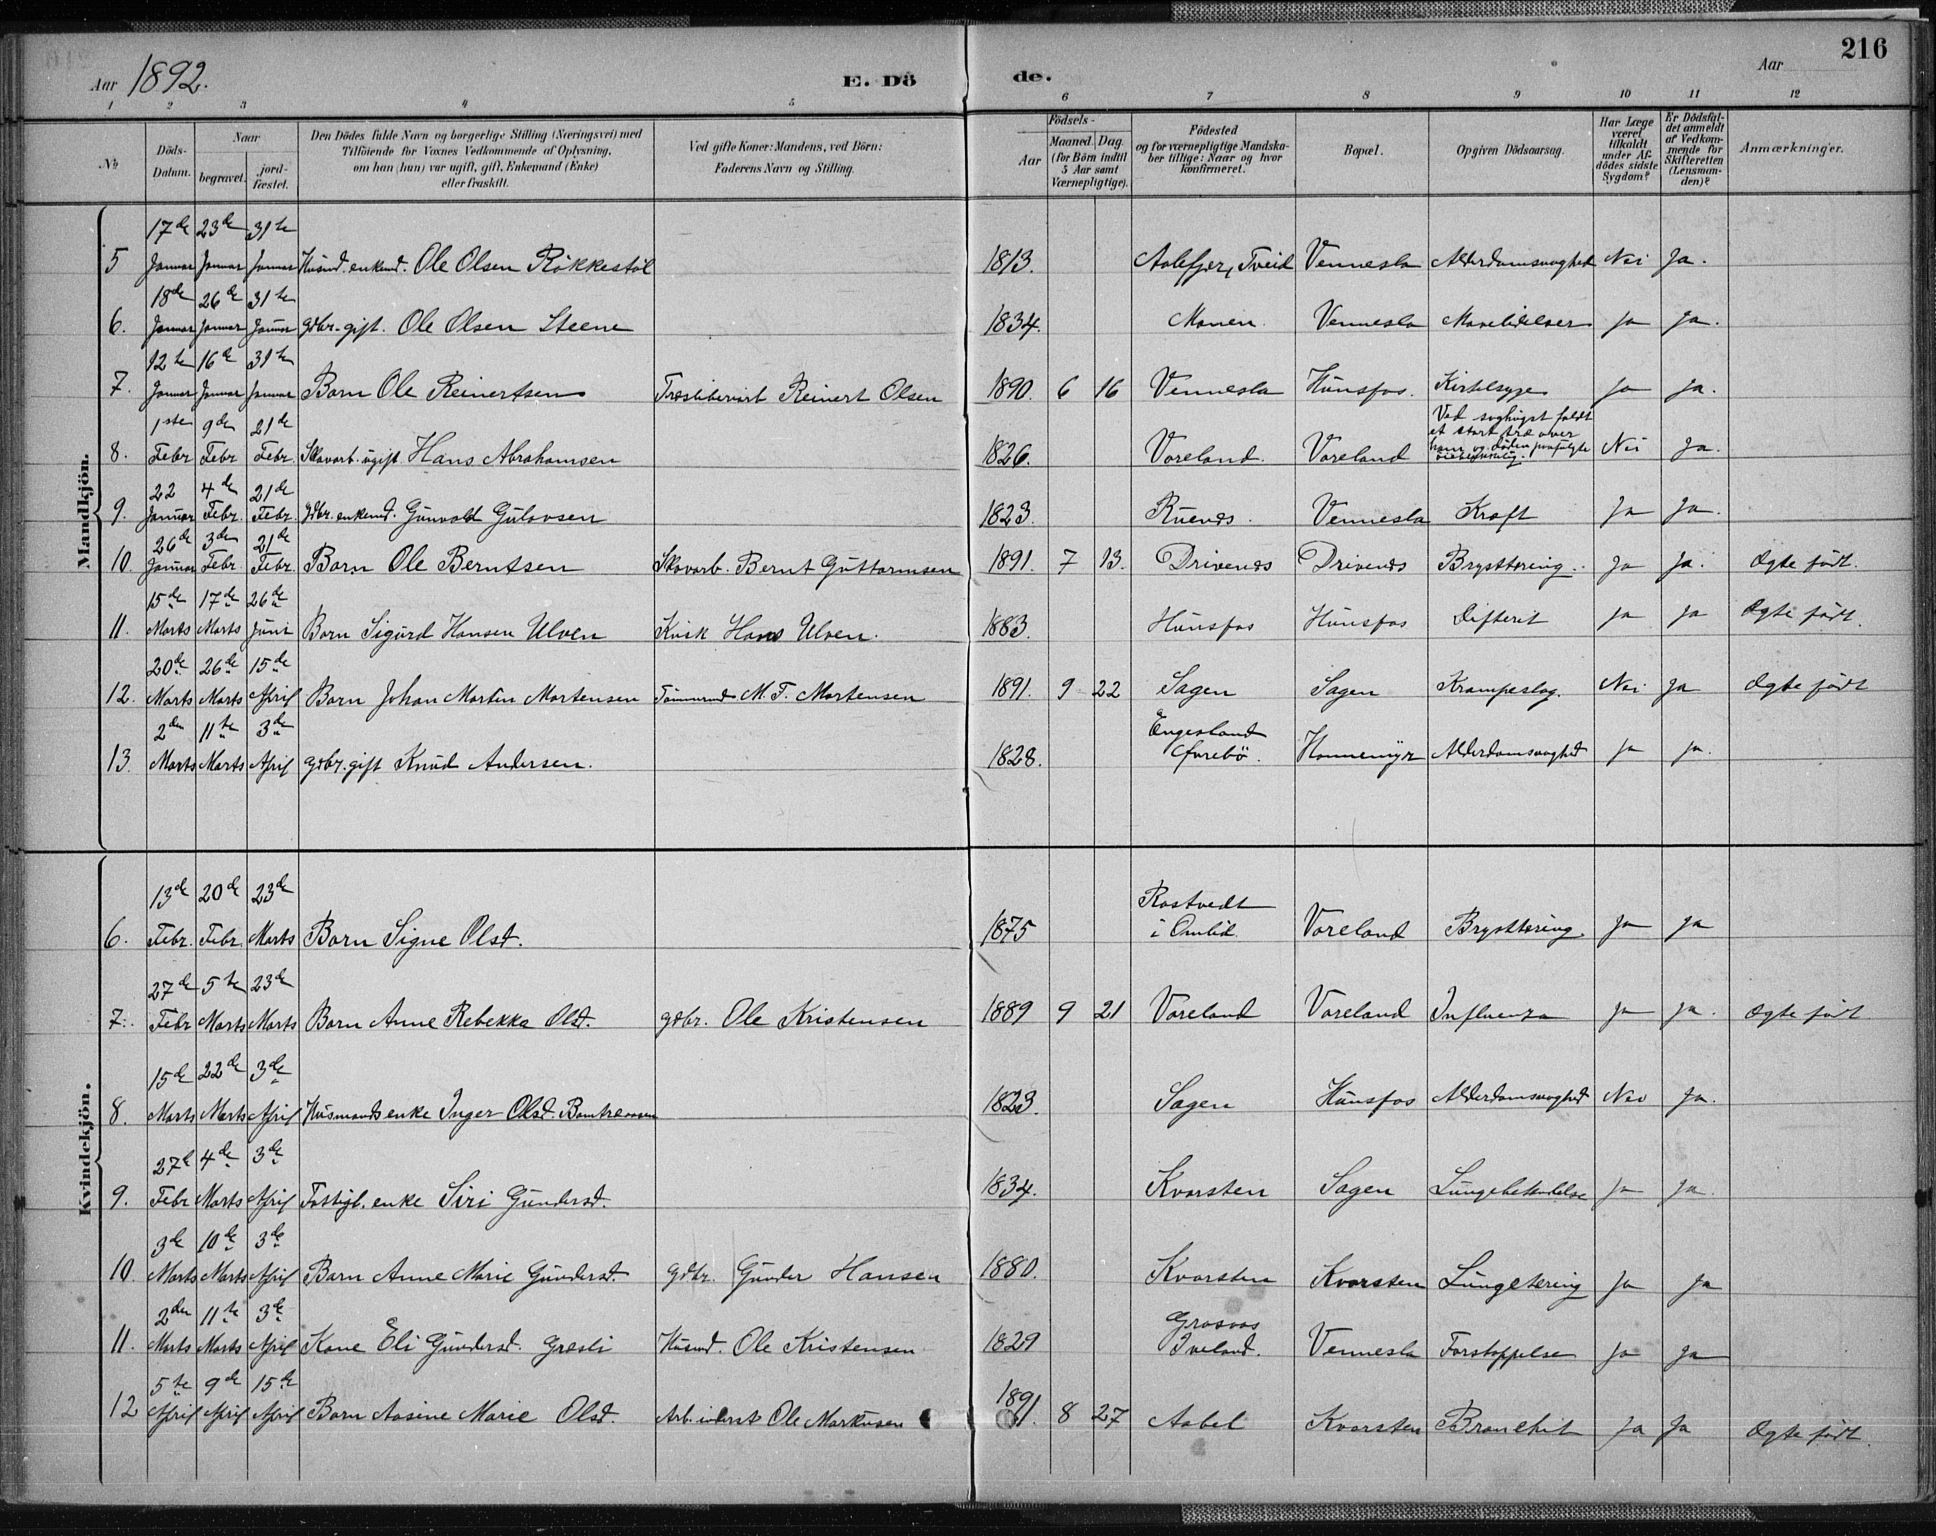 216
Aar 1892. E. Dö de. Aar
1 2 3 4 5 6 7 8 9 10 11 12
№ Döds-Datum. Naar begravet. jord-fæstet. Den Dödes fulde Navn og borgerlige Stilling (Næringsvei) med Tilföiende for Voxnes Vedkommende af Oplysning, om han (hun) var ugift, gift, Enkemand (Enke) eller fraskilt. Ved gifte Koner: Mandens, ved Börn: Faderens Navn og Stilling. Födsels- Aar Maaned. Dag. (for Börn indtil 5 Aar samt Værnepligtige). Födested og for værnepligtige Mandska-ber tillige: Naar og hvor konfirmeret. Bopæl. Opgiven Dödsaarsag. Har Læge været tilkaldt under Af-dödes sidste Sygdom? Er Dödsfal-det anmeldt af Vedkom-mende for Skifteretten (Lensman-den)? Anmærkninger.
Mandkjön.
17de 23de 31te
5 Januar Januar Januar Husmd. enkemd. Ole Olsen Røkkestøl 1813. Aalefjær, Tveid Vennesla Alderdomsvaghed Nei Ja.
18de 26de 31te
6. Januar Januar Januar gdbr. gift. Ole Olsen Steene 1834. Monen. Vennesla Mavelidelser Ja Ja.
12te 16de 31te
7. Januar Januar Januar Barn Ole Reinertsen Træsliberiarb Reinert Olsen 1890. 6 16 Vennesla Hunsfos. Kirtelsyge Ja Ja.
1ste 9de 21de Ved skoghugst faldt
et stort træ over
8. Febr Febr Febr. Skovarb. ugift Hans Abrahamsen 1826. Voreland. Voreland ham og døden paafulgte Nei Ja.
øieblikkelig.
22 4de 21de
9. Januar Febr. Febr. gdbr. enkemd. Gunvald Gulovsen 1823. Ruenes. Vennesla Kræft Ja Ja.
26de 3de 21de
10. Januar Febr. Febr Barn Ole Berntsen Skovarb. Bernt Guttormsen 1891. 7 13. Drivenes Drivenes Brysttæring. Ja Ja. Ægte født.
15de 17de 26de
11. Marts Marts Juni Barn Sigurd Hansen Ulven Hans Ulven. 1883. Hunsfos Hunsfos Difterit Ja Ja Ægte født.
20de 26de 15de
12. Marts Marts April Barn Johan Martin Mortensen Tømmermd M. T. Mortensen 1891. 9 22 Sagen Sagen Krampeslag. Nei Ja Ægte født
2den 11te 3de Engesland
13. Marts Marts April gdbr. gift Knud Andersen. 1828. Øvrebö. Honnemyr Alderdomsvaghed Ja Ja.
Kvindekjön.
13de 20de 23de Rostvedt
6. Febr. Febr. Marts Barn Signe Olsd. 1875 i Omlid. Voreland Brysttæring. Ja Ja
27de 5te 23de
7. Febr Marts Marts Barn Anne Rebekka Olsd. gdbr. Ole Kristensen 1889 9 21 Voreland Voreland Influenza Ja Ja. Ægte født
15de 22de 3de
8. Marts Marts April Husmandsenke Inger Olsd. 1823. Sagen Hunsfos Alderdomsvaghed Nei Ja.
27de 4de 3de
9. Febr Marts April Fattigl. enke Siri Gundersd. 1834. Kvorsten Sagen Lungebetendelse Ja Ja.
3de 10de 3de
10. Marts Marts April Barn Anne Marie Gundersd. gdbr. Gunder Hansen 1880. Kvarsten Kvarsten Lungetæring Ja Ja
2den 11te 3de Grosaas
11. Marts Marts April Kone Eli Gundersd. Græsli Husmd. Ole Kristensen 1829 Iveland. Vennesla Forstoppelse Ja Ja
5te 9de 15de
12 April April April Barn Aasine Marie Olsd. Arb. inderst Ole Markusen 1891. 8 27 Aabel Kvarsten Bronchit Ja Ja Ægte født.